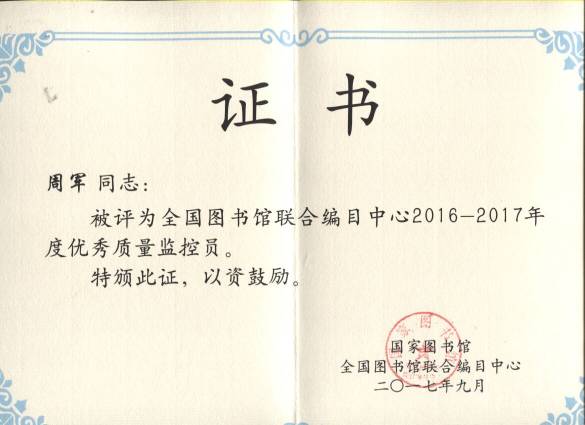 证 书
周军 同志：
被评为全国图书馆联合编目中心2016-2017年
度优秀质量监控员。
特颁此证，以资鼓励。
国家图书馆
全国图书馆联合编目中心
二〇一七年九月